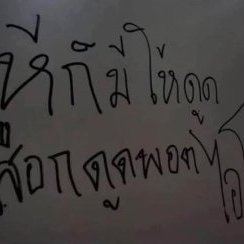 หีก็มีให้ดูด
สือกดูดพอตไอ